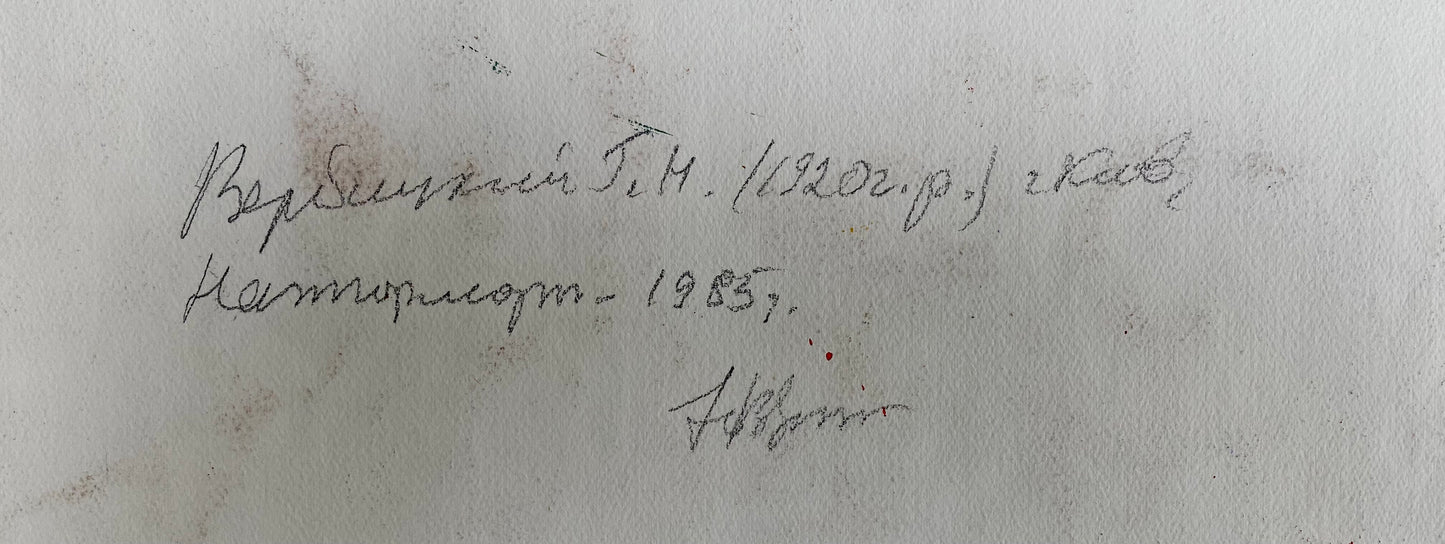 Вербицкий Г.Н. (1920г.р.) г.Киев,
Натюрморт - 1985г.